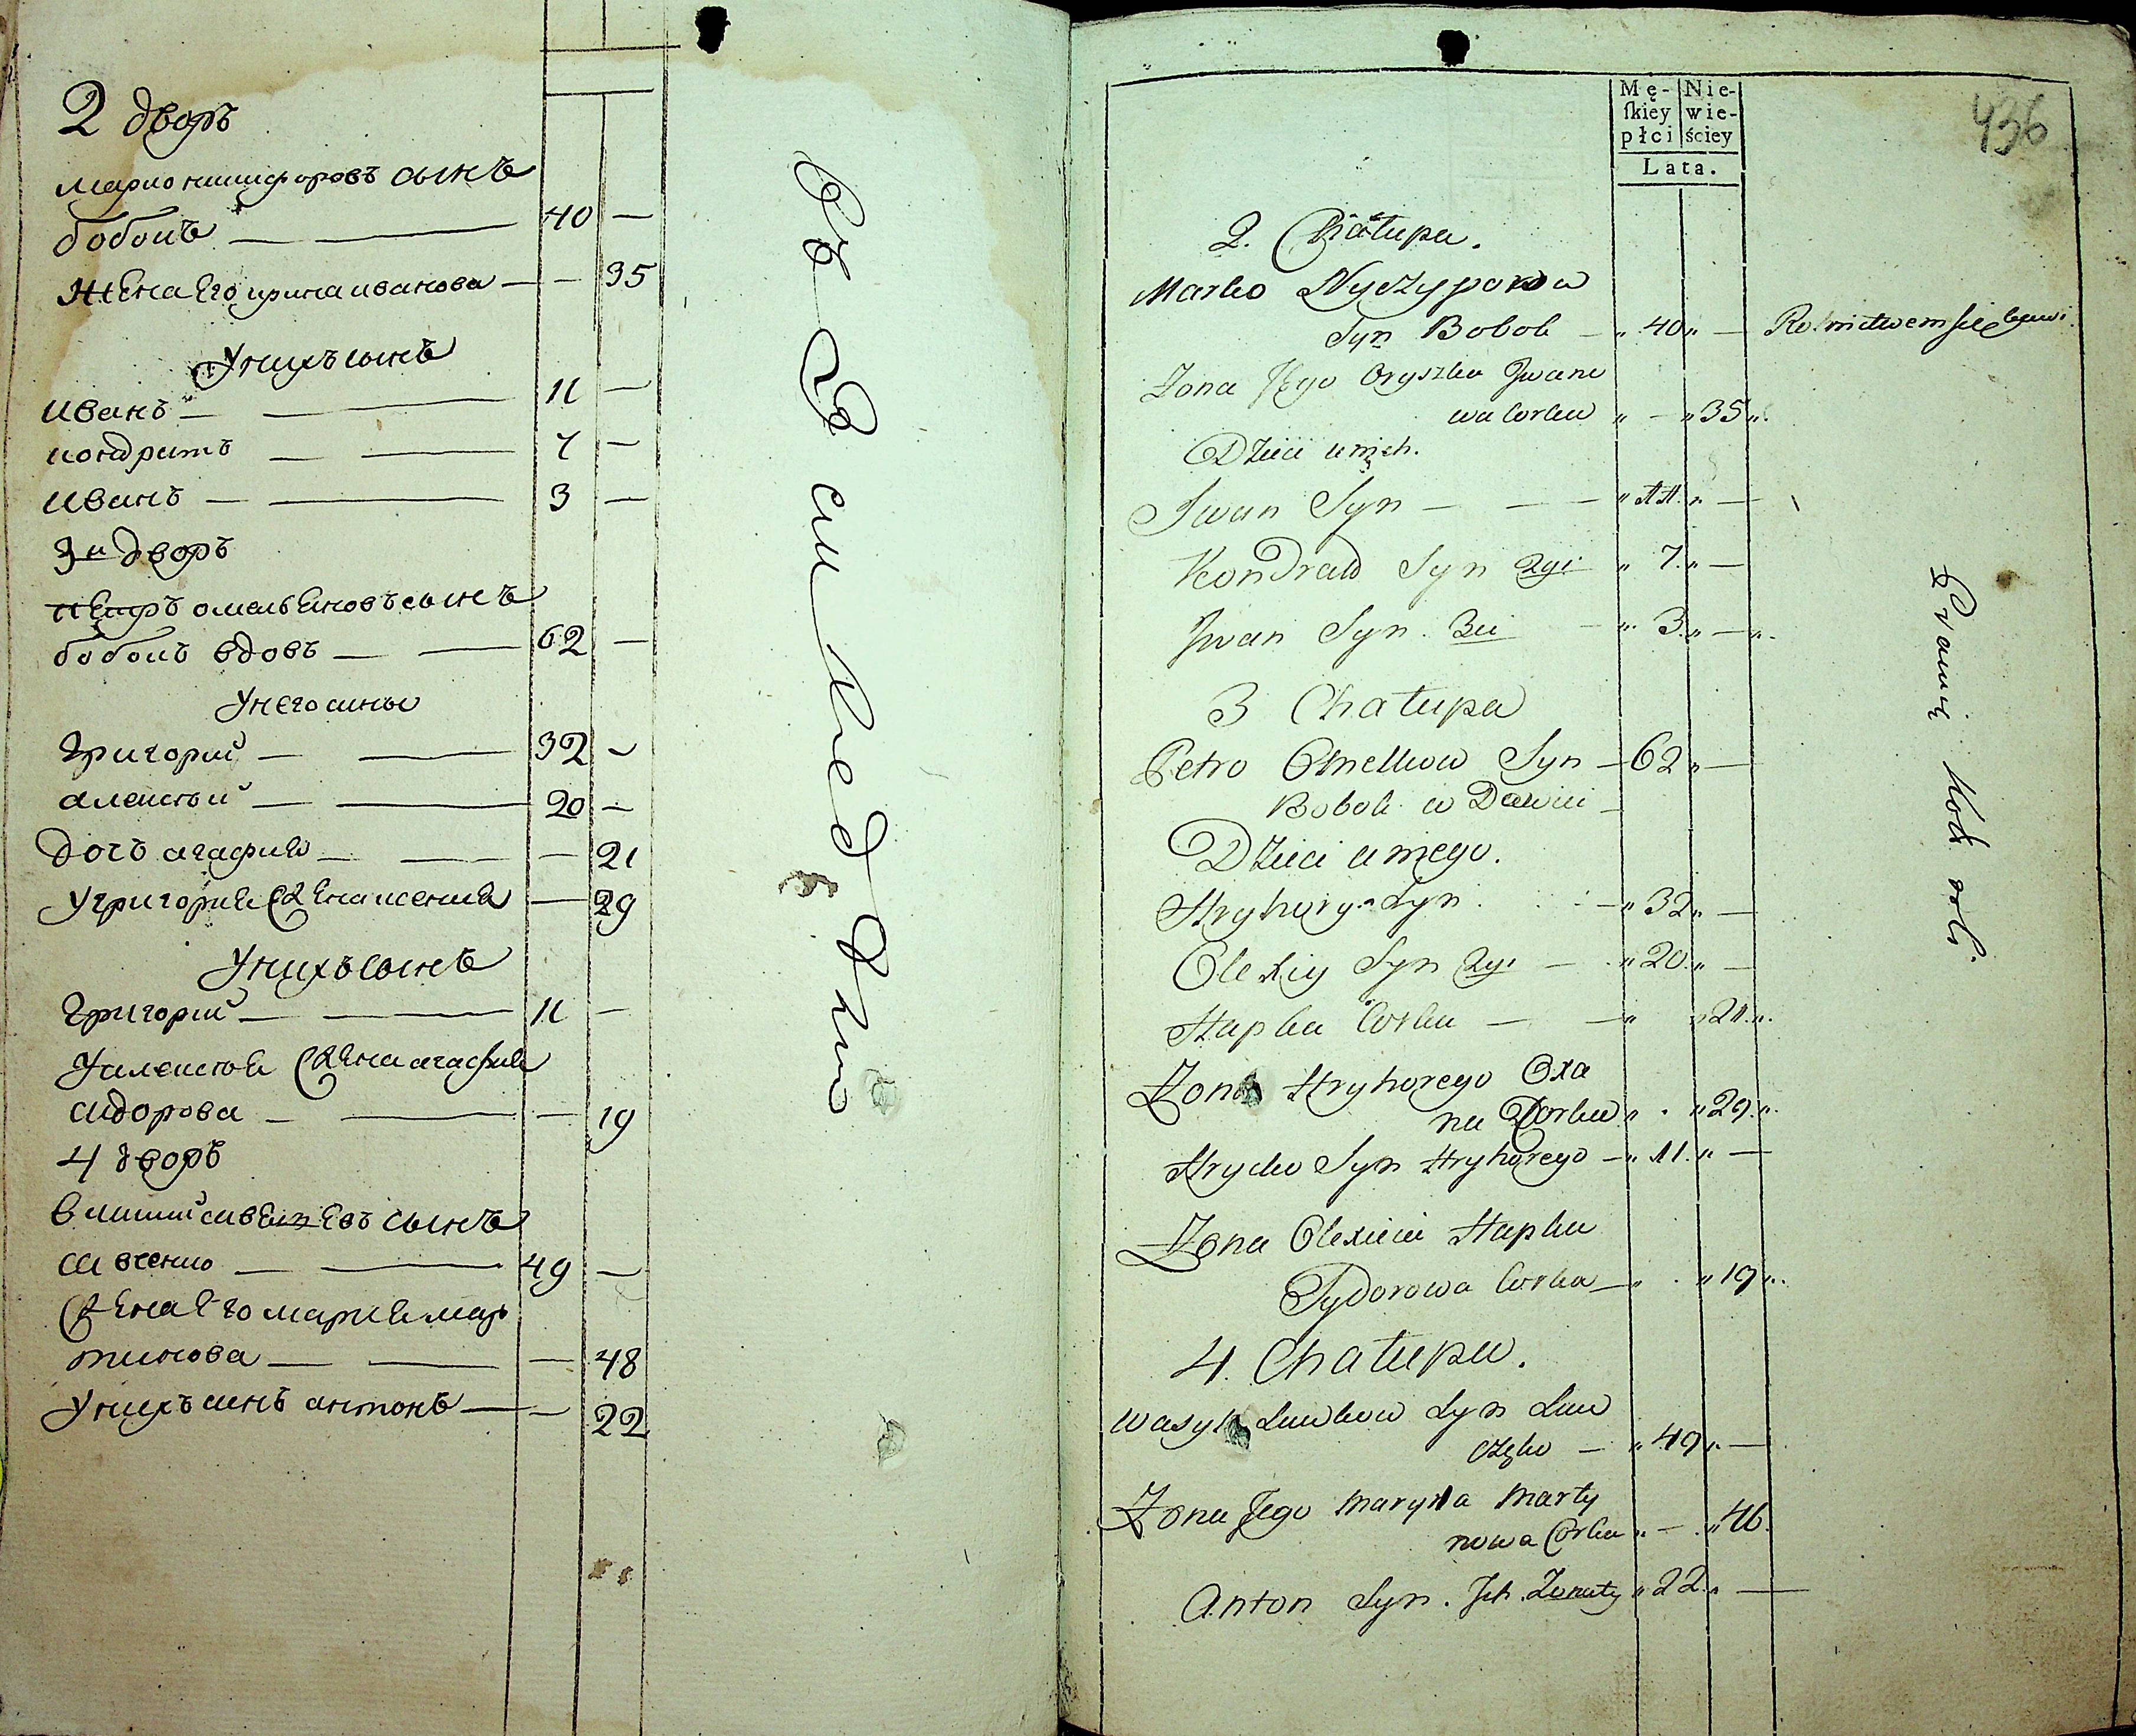 2 дворъ
марко никифоровъ сынъ
бобокъ — — 40 —
жена Его ирина иванова — — 35
У нихъ сынъ
иванъ — — 11 —
кондратъ — — 7 —
иванъ — — 3 —
3й дворъ
пЕтръ омелъЕновъ сынъ
бобокъ вдовъ — — 62 —
У него сины
григорий — — 32 —
алексъй — — 20 —
дочъ агафия — — — 21
У григория жЕна ксения — 29
У нихъ сынъ
григорий — — 11 —
У алексъя жЕна агафия
сидорова — — — 19
4 дворъ
василий савЕлЕвъ сынъ
савченко — — 49 —
жЕна Его мария мар
тинова — — — 48
У нихъ синъ антонъ — — 22
436
Mę-
ſkiey
płci
Nie-
wie-
ściey
Lata.
2. Chałupa.
Marko Nyczyporow
Syn Bobok — „ 40 „ — Rolnictwem się bawi.
Zona Jego Oryszka Jwano
wa Corka „ — „ 35 „.
Dzieci u nich.
Jwan Syn — — „ 11. „ —
Kondrad Syn 2gi „ 7. „ —
Jwan Syn. 3ci — „ 3. „ — „.
3 Chałupa
Petro Omelkow Syn — 62 „ —
Bobok w Dowiec —
Dzieci u niego.
Hryhory Syn. — „ 32 „ —
Olexiy Syn 2gi — „ 20. „ —
Hapka Corka — — „ „ 21. „.
Zona Hryhorego Oxa
na Corka „ . „ 29. „.
Hryćko Syn Hryhorego — „ 11. „ —
Zona Olexieia Hapka
Sydorowa Corka — „ . „ 19 „.
4. Chałupa.
Wasyl Sawkow Syn Saw
częko — „ 49 „. —
Zona Jego Maryna Marty
nowa Corka „ — . „ 46.
Anton Syn. Jch. Zonaty „ 22. „ —